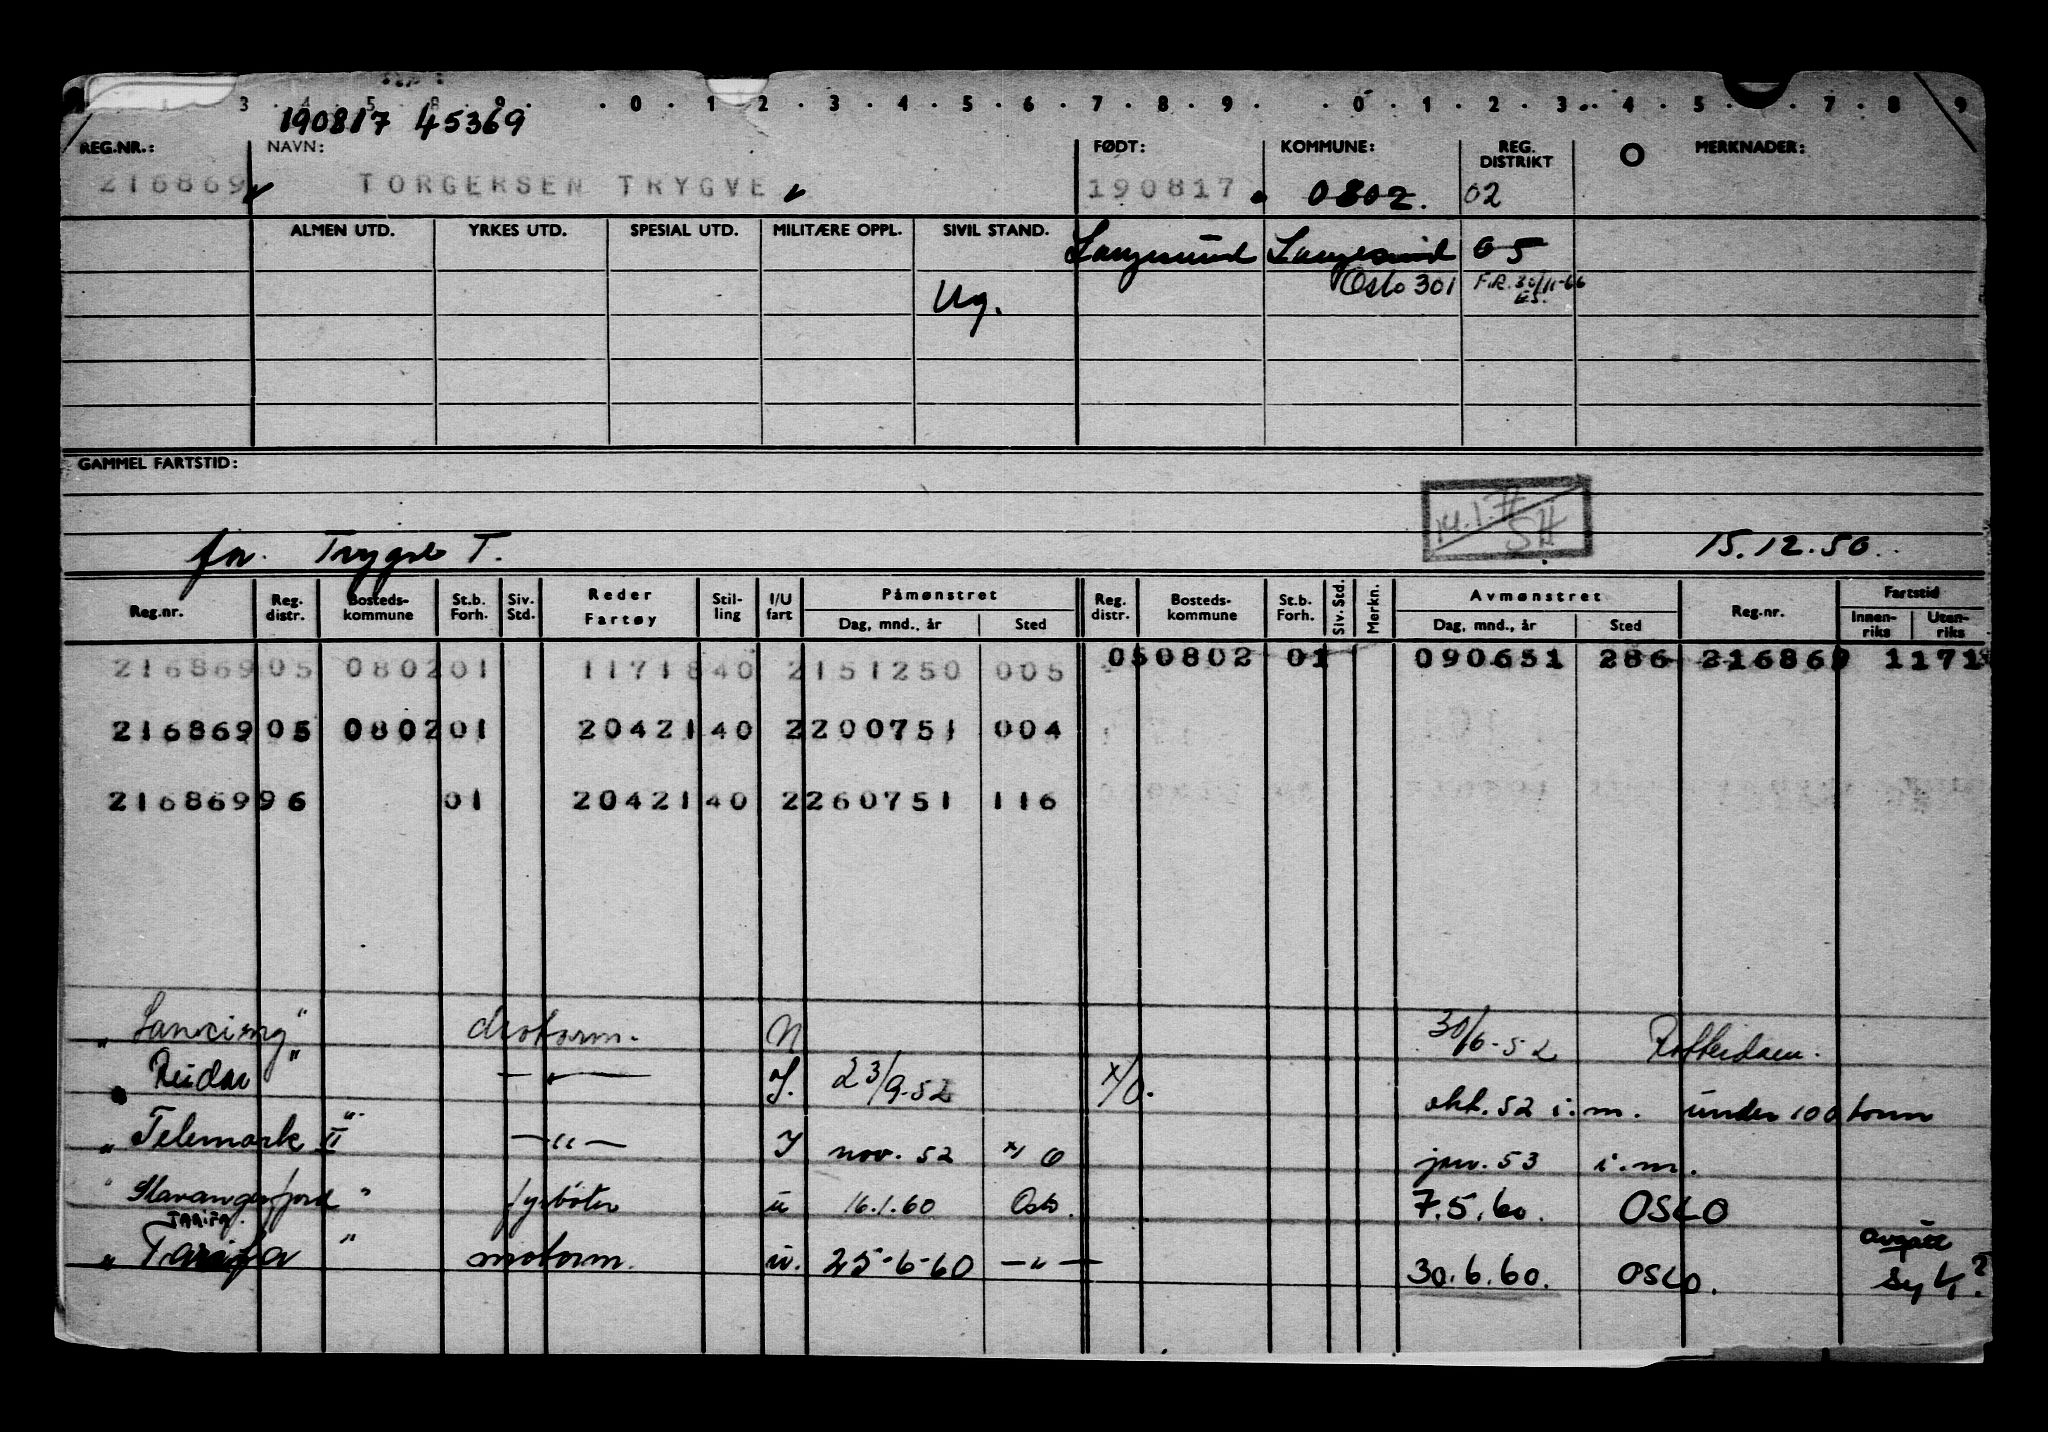 3 . 4 . 5 . 8 . 9 . . 0 . 1 . 2 . 3 . 4 . 5 . 6 . 7 . 8 . 9 . . 0 . 1 . 2 . 3 . 4 . 5 . . 7 . 8 . 9
190817 45369
REG.NR.: NAVN: FØDT: KOMMUNE: REG. DISTRIKT O MERKNADER:
216869 TORGERSEN TRYGVE 190817 0802. 02
ALMEN UTD. YRKES UTD. SPESIAL UTD. MILITÆRE OPPL. SIVIL STAND. Langesund Langesund 05
Ug. Oslo 301 F.R. 30/11-66
ES.
GAMMEL FARTSTID:
14.1.77 SH
fn. Trygve T. 15.12.50.
Reg.nr. Reg. distr. Bostedskommune St.b. Forh. Siv. Std. Reder Fartøy Stilling I/U fart Påmønstret Dag, mnd., år Sted Reg. distr. Bostedskommune St.b. Forh. Siv. Std. Merkn. Avmønstret Dag, mnd., år Sted Reg.nr. Fartstid Innenriks Utenriks
216869 05 0802 01 11718 40 2 151250 005 05 0802 01 090651 286 216869 1171
216869 05 0802 01 20421 40 2 200751 004
216869 96 01 20421 40 2 260751 116
" " motorm. U 30/6-52 Rotterdam.
Reidar " — " — I. 23/9.52 x/O. okt. 52 i.m. under 100 tonn
" Telemark II " — " — I nov. 52 x/O jan. 53 i.m.
" Stavangerfjord " fyrbøter u 16.1.60 Oslo. 7.5.60. OSLO
TARIFA.
" Tarifa " motorm. u. 25-6-60 — " — 30.6.60. OSLO. avgått syk?